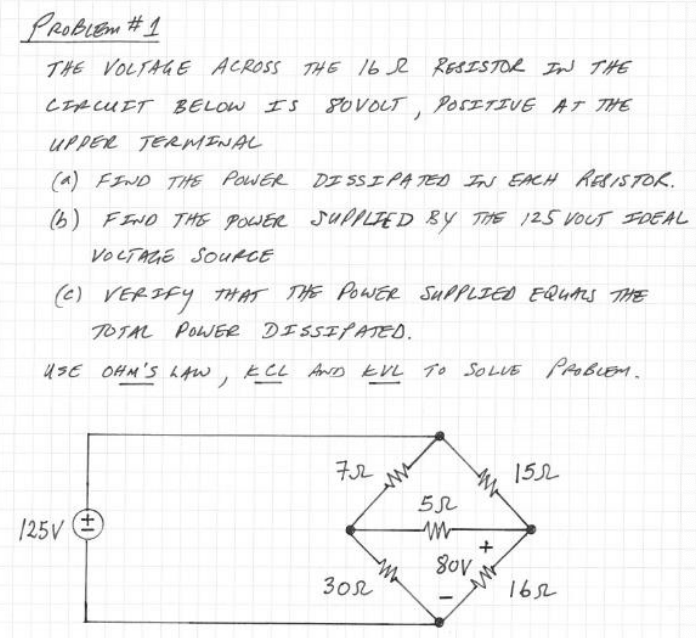 PROBLEM # 1
THE VOLTAGE ACROSS THE 16 Ω RESISTOR IN THE
CIRCUIT BELOW IS 80VOLT, POSITIVE AT THE
UPPER TERMINAL
(a) FIND THE POWER DISSIPATED IN EACH RESISTOR.
(b) FIND THE POWER SUPPLIED BY THE 125 VOLT IDEAL
VOLTAGE SOURCE
(c) VERIFY THAT THE POWER SUPPLIED EQUALS THE
TOTAL POWER DISSIPATED.
USE OHM'S LAW, KCL AND KVL TO SOLVE PROBLEM.
7Ω
15Ω
5Ω
125V
±
+
80V
-
30Ω
16Ω